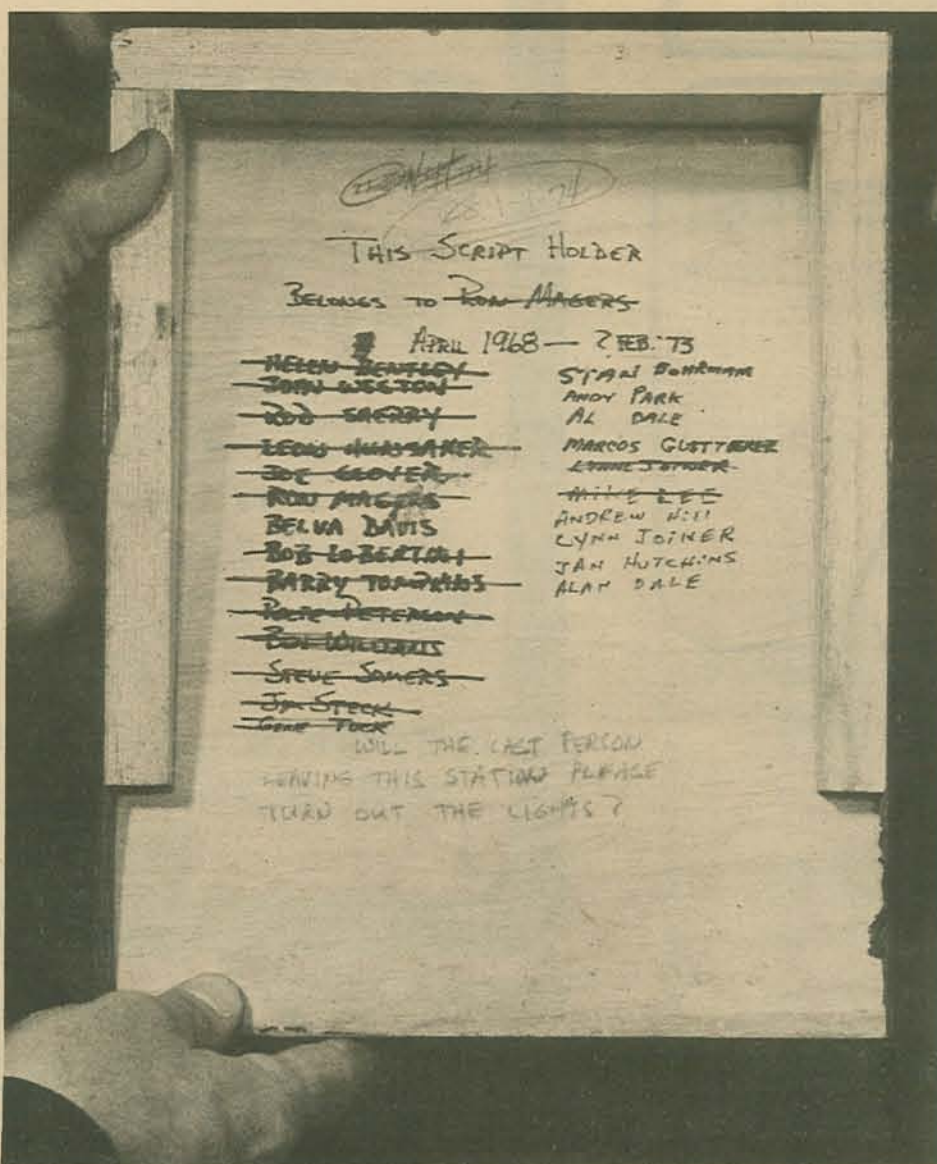 3
THIS SCRIPT HOLDER
BELONGS TO RON MAGERS
APRIL 1968 — ? FEB. '73
HELEN BENTLEY
JOHN WESTON
ROD SHERRY
LEON HUNSAKER
JOE GLOVER
RON MAGERS
BELVA DAVIS
BOB
BARRY TOMPKINS
PETE PETERSON
BOB WILLIAMS
STEVE SOMERS
JIM STECK
GENE TUCK
STAN BOHRMAN
ANDY PARK
AL DALE
MARCOS
LYNNE JOINER
MIKE LEE
ANDREW HILL
LYNN JOINER
JAN HUTCHINS
ALAN DALE
WILL THE LAST PERSON
LEAVING THIS STATION PLEASE
TURN OUT THE LIGHTS?